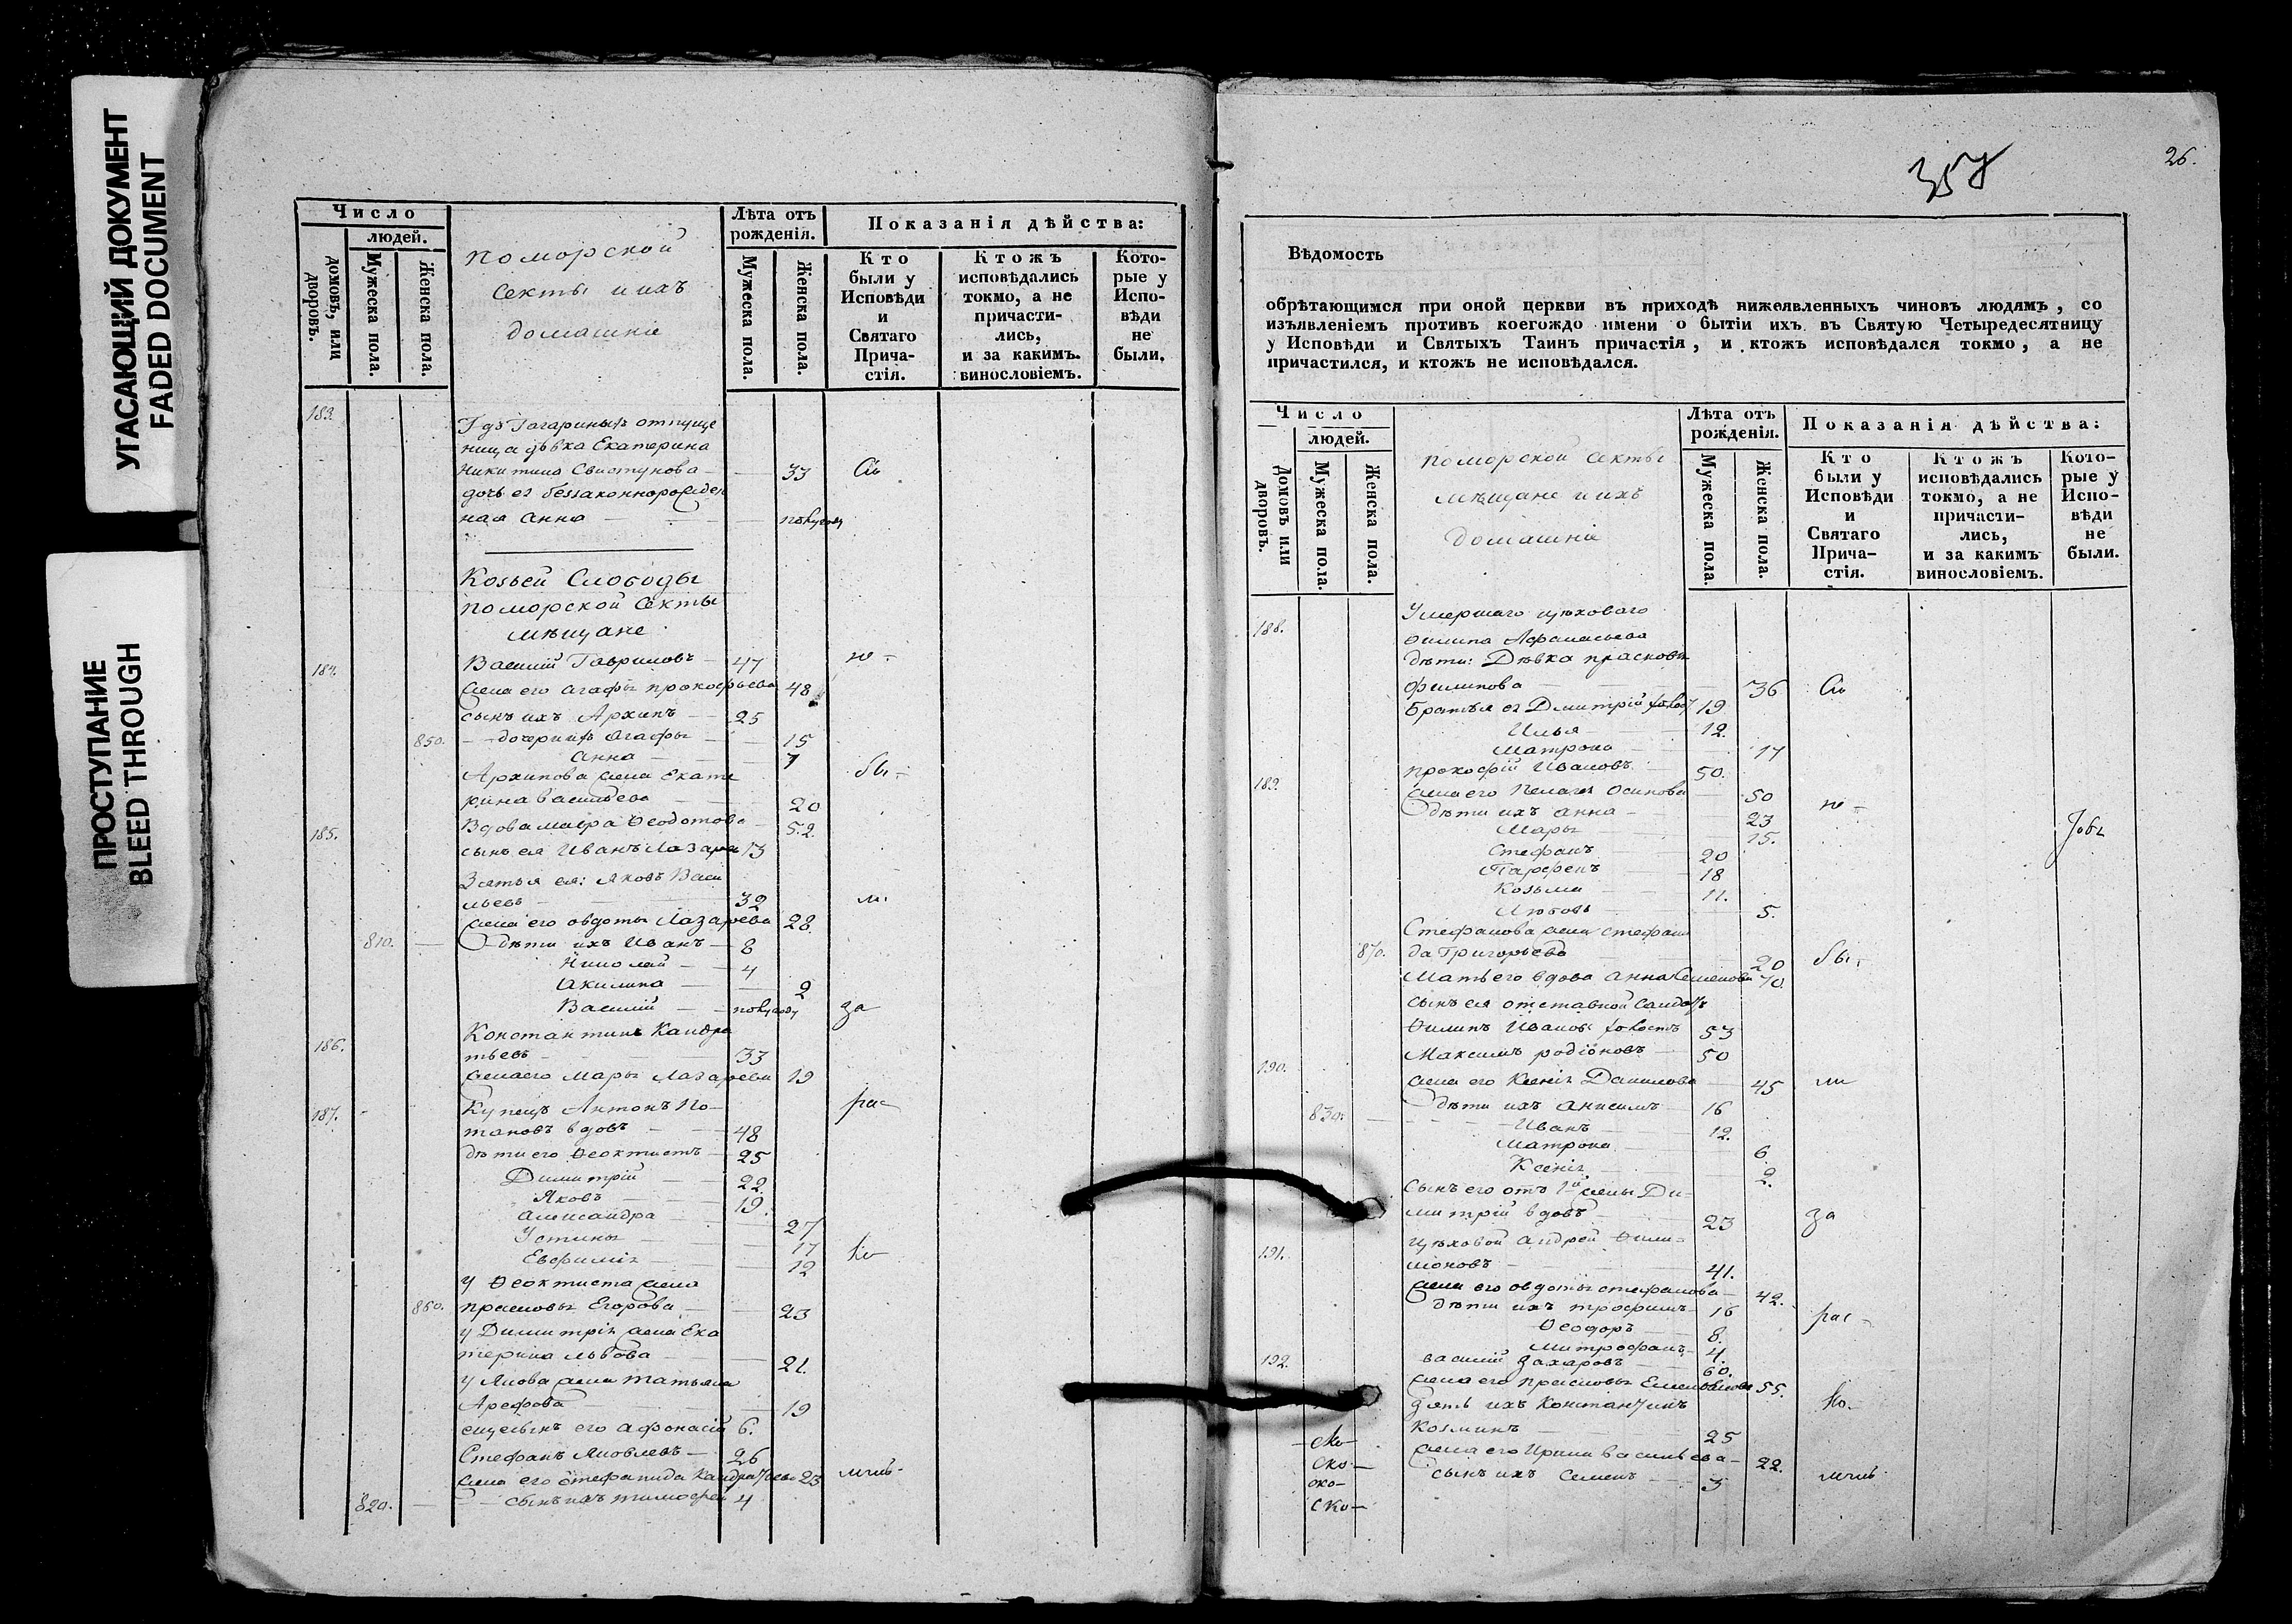 УГАСАЮЩИЙ ДОКУМЕНТ
FADED DOCUMENT
ПРОСТУПАНИЕ
BLEED THROUGH
Число
людей.
домовъ, или дворовъ.
Мужеска пола.
Женска пола.
поморской
секты и ихъ
домашніе
Лѣта отъ рожденія.
Мужеска пола.
Женска пола.
Показанія дѣйства:
Кто были у Исповѣди и Святаго Прича-стія.
Ктожъ исповѣдались токмо, а не причасти-лись, и за какимъ. винословіемъ.
Кото-рые у Испо-вѣди не были.
183.
Гдъ Гагариныхъ отпуще
ница дѣвка Екатерина
Никитина Свистунова — 33 Съ
дочь ея беззаконнорожден
ная Анна — полугоду
Козьей Слободы
поморской секты
мѣщане
184. Василій Гавриловъ — 47 не -
жена его Агафья прокофьева 48
сынъ ихъ Архипъ — 25
850. — дочери ихъ Агафья — 15
Анна — 7 бы -
Архипова жена Екате
рина васильева — 20
185. Вдова мавра Ѳеодотова — 52.
сынъ ея Иванъ Лазаре 13
Зятья ея: Яковъ Васи
льевъ — 32
жена его овдотья Лазарева 28.
810. — дѣти ихъ Иванъ — 8
Николай — 4
Акилина — 2
Василій — полугоду за
186. Константинъ Кандра
тьевъ — 33
жена его Марья Лазарева 19
187. Купецъ Антонъ По- рас
таповъ вдовъ — 48
дѣти его Ѳеоктистъ — 25
Димитрій — 22.
Яковъ — 19.
Александра — 27
Устинья — 17
Евфимія — 12 ко
У Ѳеоктиста жена
860. прасковья Егорова — 23
у Димитрія жена Ека
терина львова — 21.
у Якова жена татьяна
Арефова — 19
еще сынъ его Афонасій 6.
Стефанъ Яковлевъ — 26
жена его Стефанида Кандратьева 23
820. — сынъ ихъ тимофей 4
357
26.
Вѣдомость
обрѣтающимся при оной церкви въ приходѣ нижеявленныхъ чиновъ людямъ, со
изъявленіемъ противъ коегождо имени о бытіи ихъ въ Святую Четыредесятницу
у Исповѣди и Святыхъ Таинъ причастія, и ктожъ исповѣдался токмо, а не
причастился, и ктожъ не исповѣдался.
Число
людей.
Домовъ или дворовъ.
Мужеска пола.
Женска пола.
поморской секты
мѣщане и ихъ
домашніе
Лѣта отъ рожденія.
Мужеска пола.
Женска пола.
Показанія дѣйства:
Кто были у Исповѣди и Святаго Прича-стія.
Ктожъ исповѣдались токмо, а не причасти-лись, и за какимъ винословіемъ.
Кото-рые у Испо-вѣди не были.
188. Умершаго цѣховаго
Ѳилипа Афанасьева
дѣти: Дѣвка прасковья
филипова — 36 Съ
Братья ея Дмитрій 19
Илья — 12.
Матрона — 17
189. прокофій Ивановъ — 50.
жена его Пелагея Осипова — 50
дѣти ихъ анна — 23 не -
Марья — 15.
Стефанъ — 20
Парфенъ — 18
Козьма — 11.
Любовь — 5.
Стефанова жена стефани
870. да Григорьева — 20 бы -
Мать его вдова анна Семенова 70.
сынъ ея отставной солдатъ
Ѳилипъ Ивановъ холостъ 53
190. Максимъ родіоновъ — 50
жена его Ксенія Данилова — 45 ли
830. — дѣти ихъ Анисимъ — 16
Иванъ — 12.
Матрона — 6
Ксенія — 2.
Сынъ его отъ 1й жены Ди-
митрій вдовъ — 23 за
191. цѣховой Андрей Ѳили-
моновъ — 41.
жена его овдотья стефанова — 42.
дѣти ихъ трофимъ — 16 рас -
Ѳеодоръ — 8.
Митрофанъ — 4.
192. василій Захаровъ — 60.
жена его прасковья Емельянова 55.
Зять ихъ Константинъ ко -
Козминъ — 25
жена его Ирина васильева — 22.
сынъ ихъ Семенъ — 3